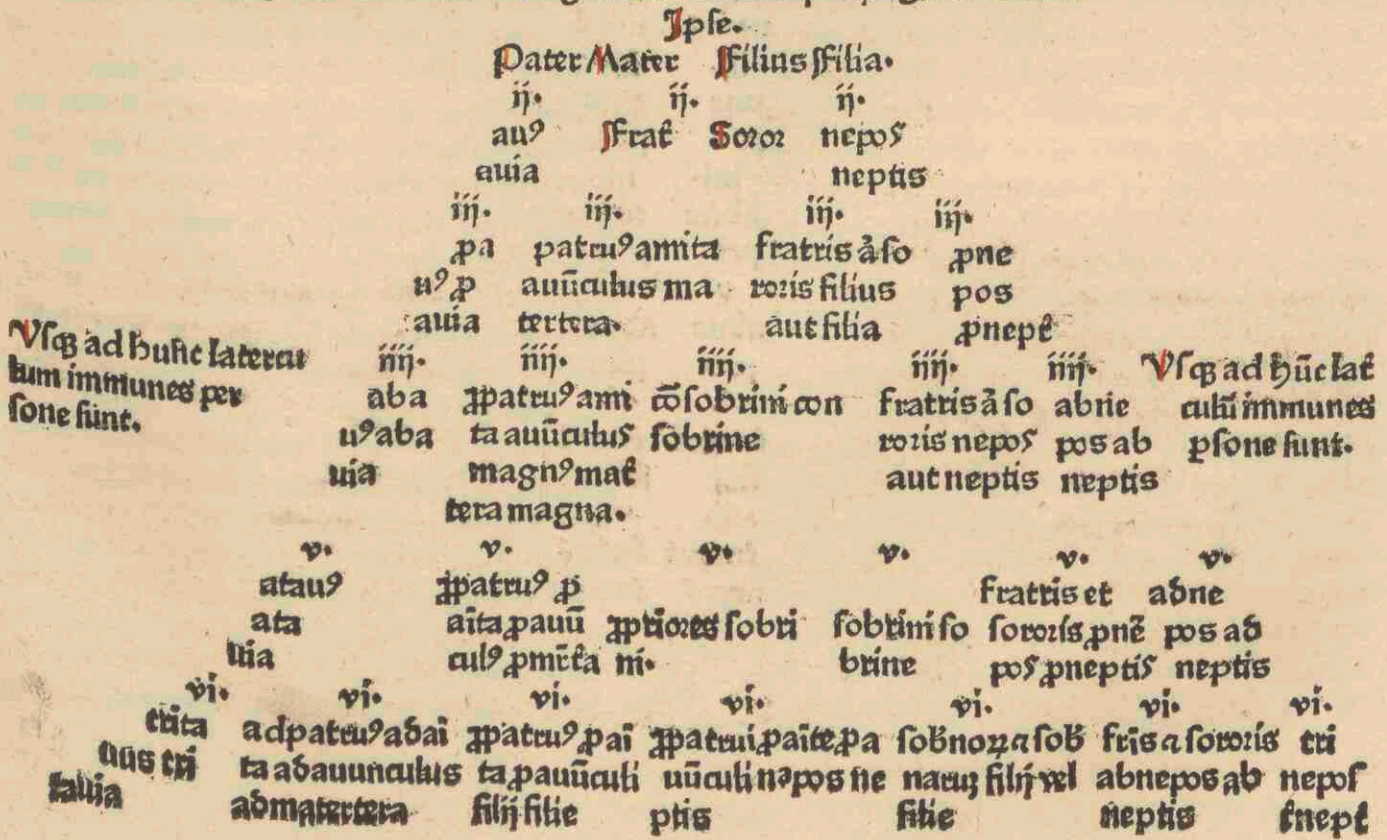 Ipse.
Pater Mater Ffilius Ffilia.
ij. ij. ij.
auꝰ Ffrat̄ Soror nepos
auia neptis
iij. iij. iij. iij.
ꝓa patruꝰ amita fratris ⁊ so ꝓne
uꝰ ꝓ auūculus ma roris filius pos
auia tertera. aut filia ꝓnept̄
Vsqꝫ ad hunc latercu iiij. iiij. iiij. iiij. iiij. Vsqꝫ ad hūc lat̄
lum immunes per aba ꝓpatruꝰ ami cōsobrini con fratris ⁊ so abne culū immunes
sone sunt. uꝰ aba ta auūculus sobrine roris nepos pos ab ꝑsone sunt.
uia magnꝰ mat̄ aut neptis neptis
tera magna.
v. v. v. v. v. v.
atauꝰ ꝓpatruꝰ ꝓ fratris et adne
ata aīta ꝓauū ꝓpriores sobri sobrini so sororis ꝓnē pos ad
uia culꝰ ꝓmr̄t̄a ni. brine pos ꝓneptis neptis
vi. vi. vi. vi. vi. vi. vi.
trita adpatruꝰ adai ꝓpatruꝰ ꝓai ꝓpatrui ꝓaīte ꝓa sob̄noꝝ ⁊ sob̄ fr̄is ⁊ sororis tri
uus tri ta adauunculus ta ꝓauūculi uūculi nepos ne naruꝫ filij vel abnepos ab nepos
tauia admatertera filij filie ptis filie neptis t̄nept̄